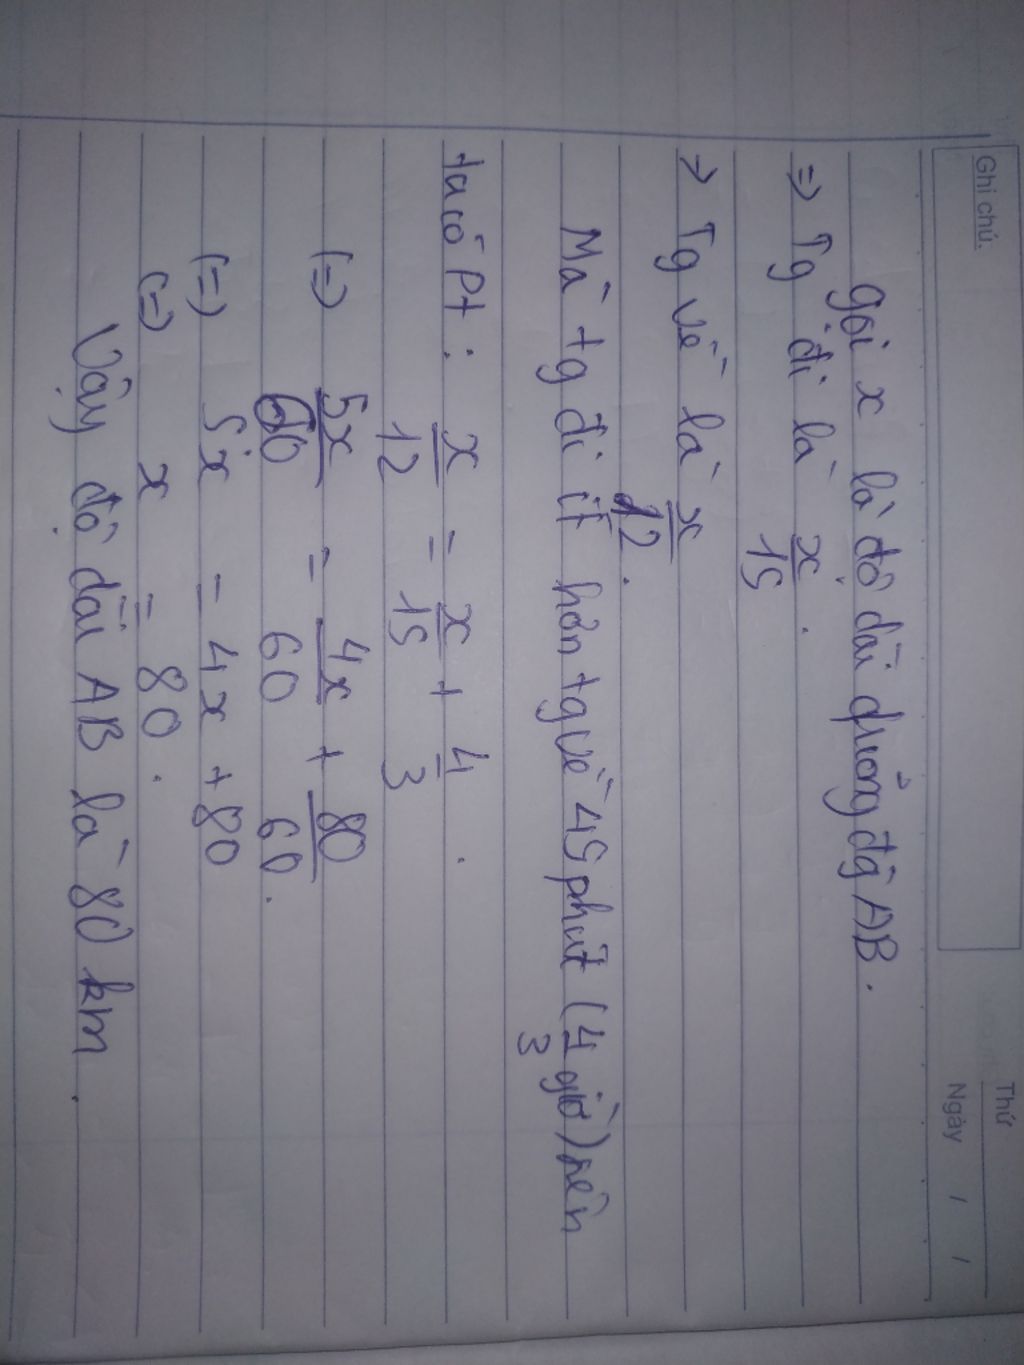 Ghi chú.
Thứ
Ngày / /
gọi x là độ dài quãng đg AB.
=> Tg đi là x/15.
-> Tg về là x/12.
Mà tg đi ít hơn tg về 45 phút (4/3 giờ) nên
ta có Pt: x/12 = x/15 + 4/3.
(=) 5x/60 = 4x/60 + 80/60.
(=) 5x = 4x + 80
(=) x = 80.
Vậy độ dài AB là 80 km.